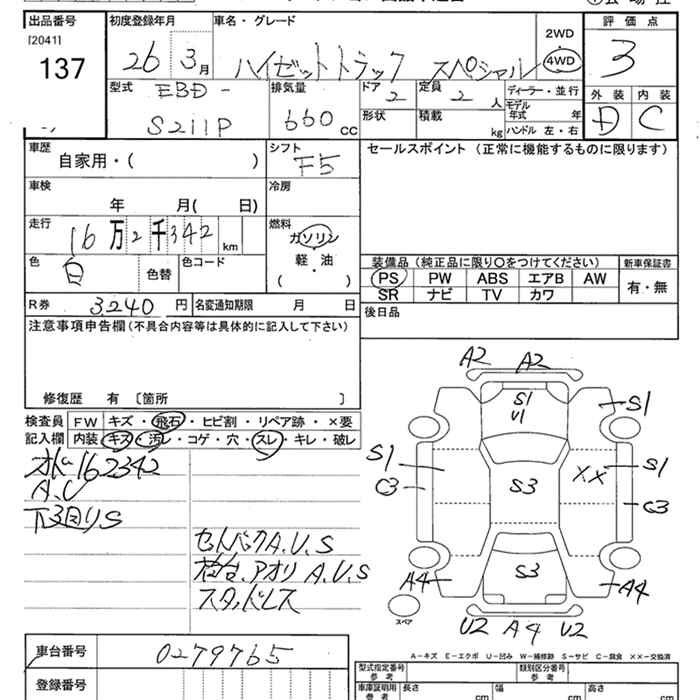 出品番号 初度登録年月 車名・グレード 2WD 評価点
[2041]
137 26 3月 ハイゼットトラック スペシャル 4WD 3
型式 EBD- 排気量 ドア 2 定員 2 人 ディーラー・並行 外装 内装
S211P 660 cc 形状 積載 kg モデル年式 年 D C
ハンドル 左・右
車歴 シフト セールスポイント (正常に機能するものに限ります)
自家用・( ) F5
車検 冷房
年 月( 日)
走行 16万2千342 km 燃料
ガソリン
色 白 色替 色コード 軽・油
( )
装備品(純正品に限り○をつけてください) 新車保証書
PS PW ABS エアB AW 有・無
SR ナビ TV カワ
R券 3,240 円 名変通知期限 月 日 後日品
注意事項申告欄(不具合内容等は具体的に記入して下さい)
修復歴 有 〔箇所 〕
検査員 FW キズ・飛石・ヒビ割・リペア跡・×要
記入欄 内装 キズ・汚レ・コゲ・穴・スレ・キレ・破レ
162342
A.U
下回りS
セットバックA.U.S
荷台.アオリ A.U.S
スタッドレス
A2 A2
S1 S1
U1
S1 XX S1
C3 S3 C3
S3
A4 A4
スペア
U2 A4 U2
A-キズ E-エクボ U-凹み W-補修跡 S-サビ C-腐食 XX-交換済
車台番号 0279765
型式指定番号 参考 類別区分番号 参考
登録番号 車庫証明用 参考 長さ cm 幅 cm 高さ cm